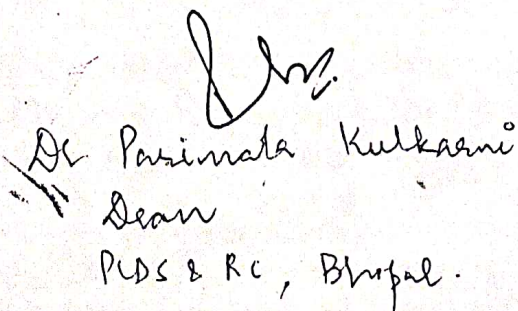 Dr Parimala Kulkarni
Dean
PCDS & RC, Bhopal.